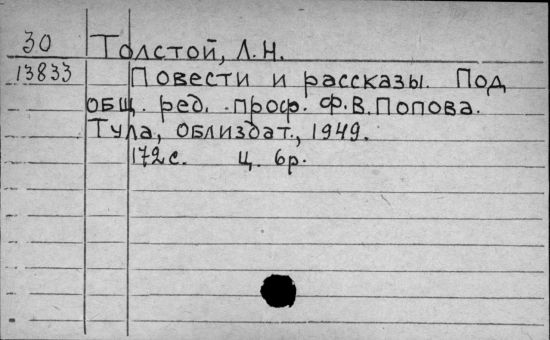 30 Толстой, Л.Н.
13833 Повести и рассказы. Под
общ. ред. проф. Ф.В.Попова.
Тула, облиздат., 1949.
172с. Ц. 6р.